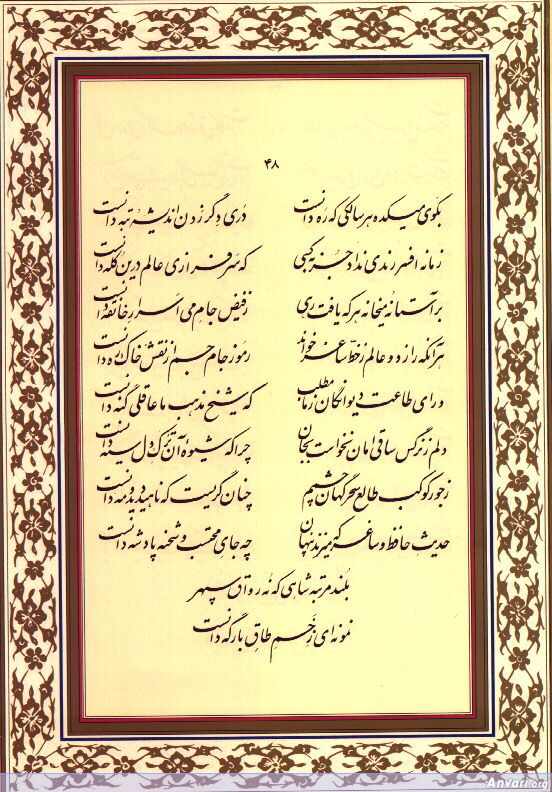 ۴۸
بکوی میکده هر سالکی که ره دانست دری دگر زدن اندیشهٔ تبه دانست
زمانه افسر رندی نداد جز به کسی که سرفرازی عالم درین کله دانست
بر آستانهٔ میخانه هر که یافت رهی ز فیض جام می اسرار خانقه دانست
هر آنکه راز دو عالم ز خط ساغر خواند رموز جام جم از نقش خاک ره دانست
ورای طاعت دیوانگان ز ما مطلب که شیخ مذهب ما عاقلی گنه دانست
دلم ز نرگس ساقی امان نخواست بجان چرا که شیوهٔ آن ترک دل سیه دانست
ز جور کوکب طالع سحرگهان چشمم چنان گریست که ناهید دید و مه دانست
حدیث حافظ و ساغر که میزند پنهان چه جای محتسب و شحنه پادشه دانست
بلند مرتبه شاهی که نه رواق سپهر
نمونه‌ای ز خم طاق بارگه دانست
Anvari.org